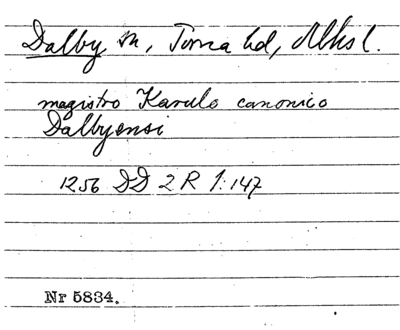 Dalby sn, Torna hd, Mlhs l.
magistro Karulo canonico
Dalbyensi
1256 DD 2 R 1:147
Nr 5834.